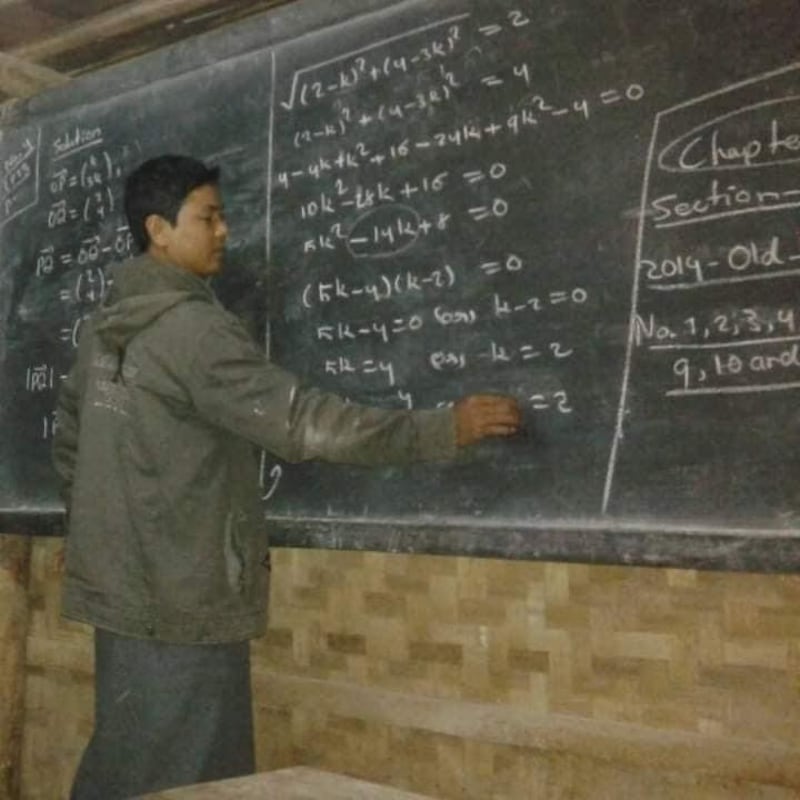 Solution
OP = (k 3k),
OQ = (2 4)
PQ = OQ - OP
= (2 4) -
= (
|PQ| -
√(2-k)² + (4-3k)² = 2
(2-k)² + (4-3k)² = 4
4 - 4k + k² + 16 - 24k + 9k² - 4 = 0
10k² - 28k + 16 = 0
5k² - 14k + 8 = 0
(5k-4)(k-2) = 0
5k-4=0 (or) k-2=0
5k = 4 or, k = 2
4 = 2
Chapte
Section-
2014 - Old -
No. 1, 2, 3, 4
9, 10 and